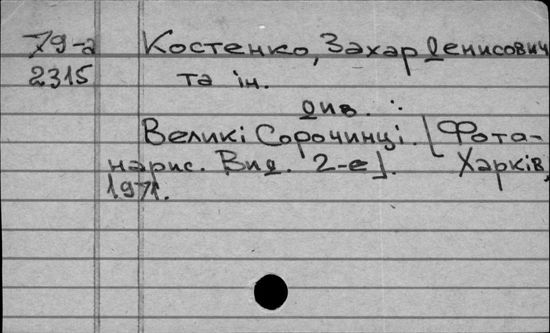 79-а Костенко, Захар Денисович
2315 та ін.
див.:
Великі Сорочинці. [Фота-
нарис. Вид. 2-е]. Харків,
1971.